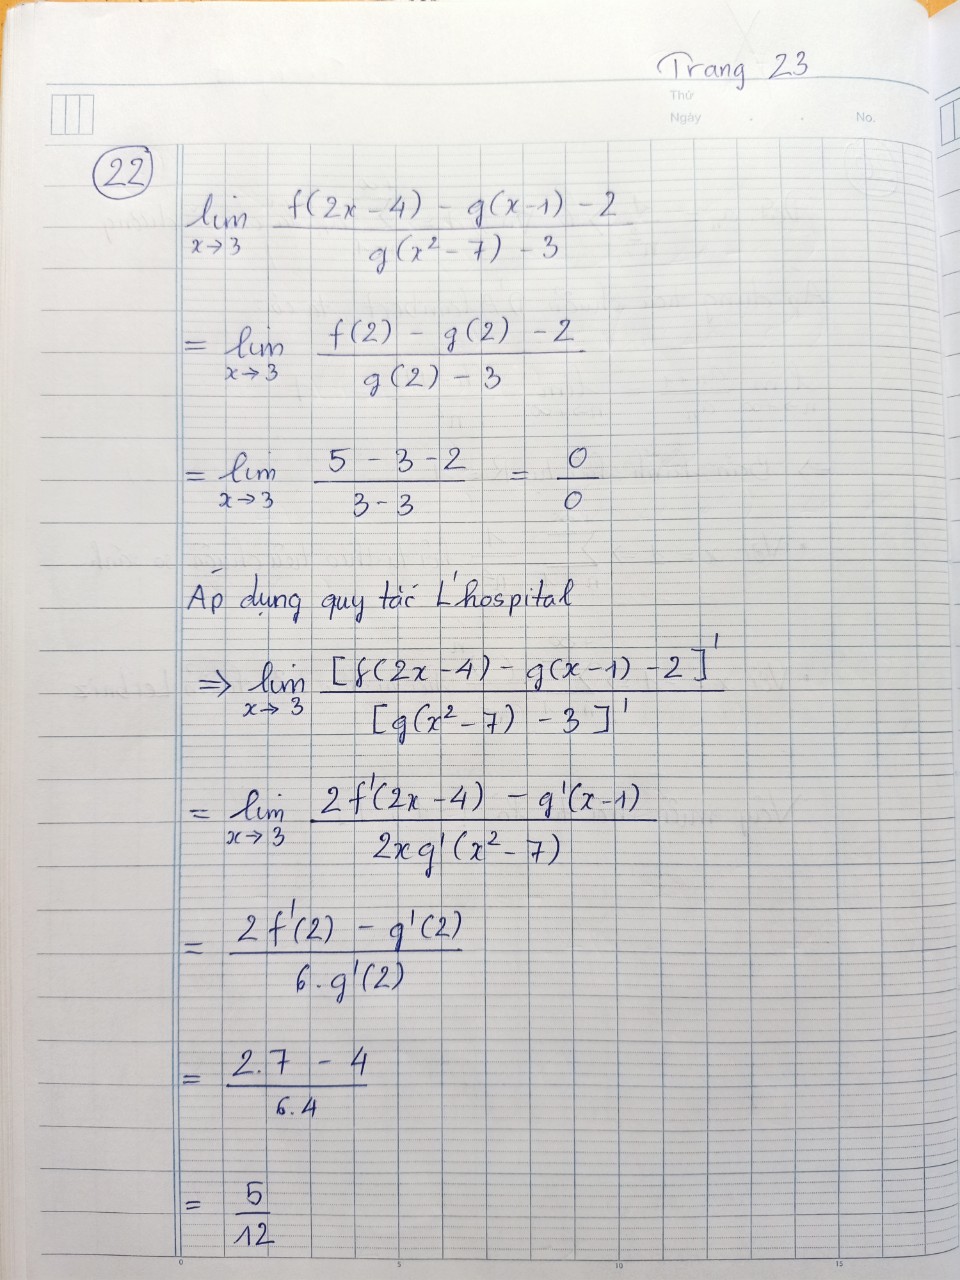 Trang 23
Thứ
Ngày . . No.
22
lim x→3 f(2x-4) - g(x-1) - 2 / g(x² - 7) - 3
= lim x→3 f(2) - g(2) - 2 / g(2) - 3
= lim x→3 5 - 3 - 2 / 3 - 3 = 0 / 0
Áp dụng quy tắc L'hospital
⇒ lim x→3 [f(2x-4) - g(x-1) - 2]' / [g(x² - 7) - 3]'
= lim x→3 2f'(2x-4) - g'(x-1) / 2xg'(x² - 7)
= 2f'(2) - g'(2) / 6.g'(2)
= 2.7 - 4 / 6.4
= 5 / 12
0 5 10 15